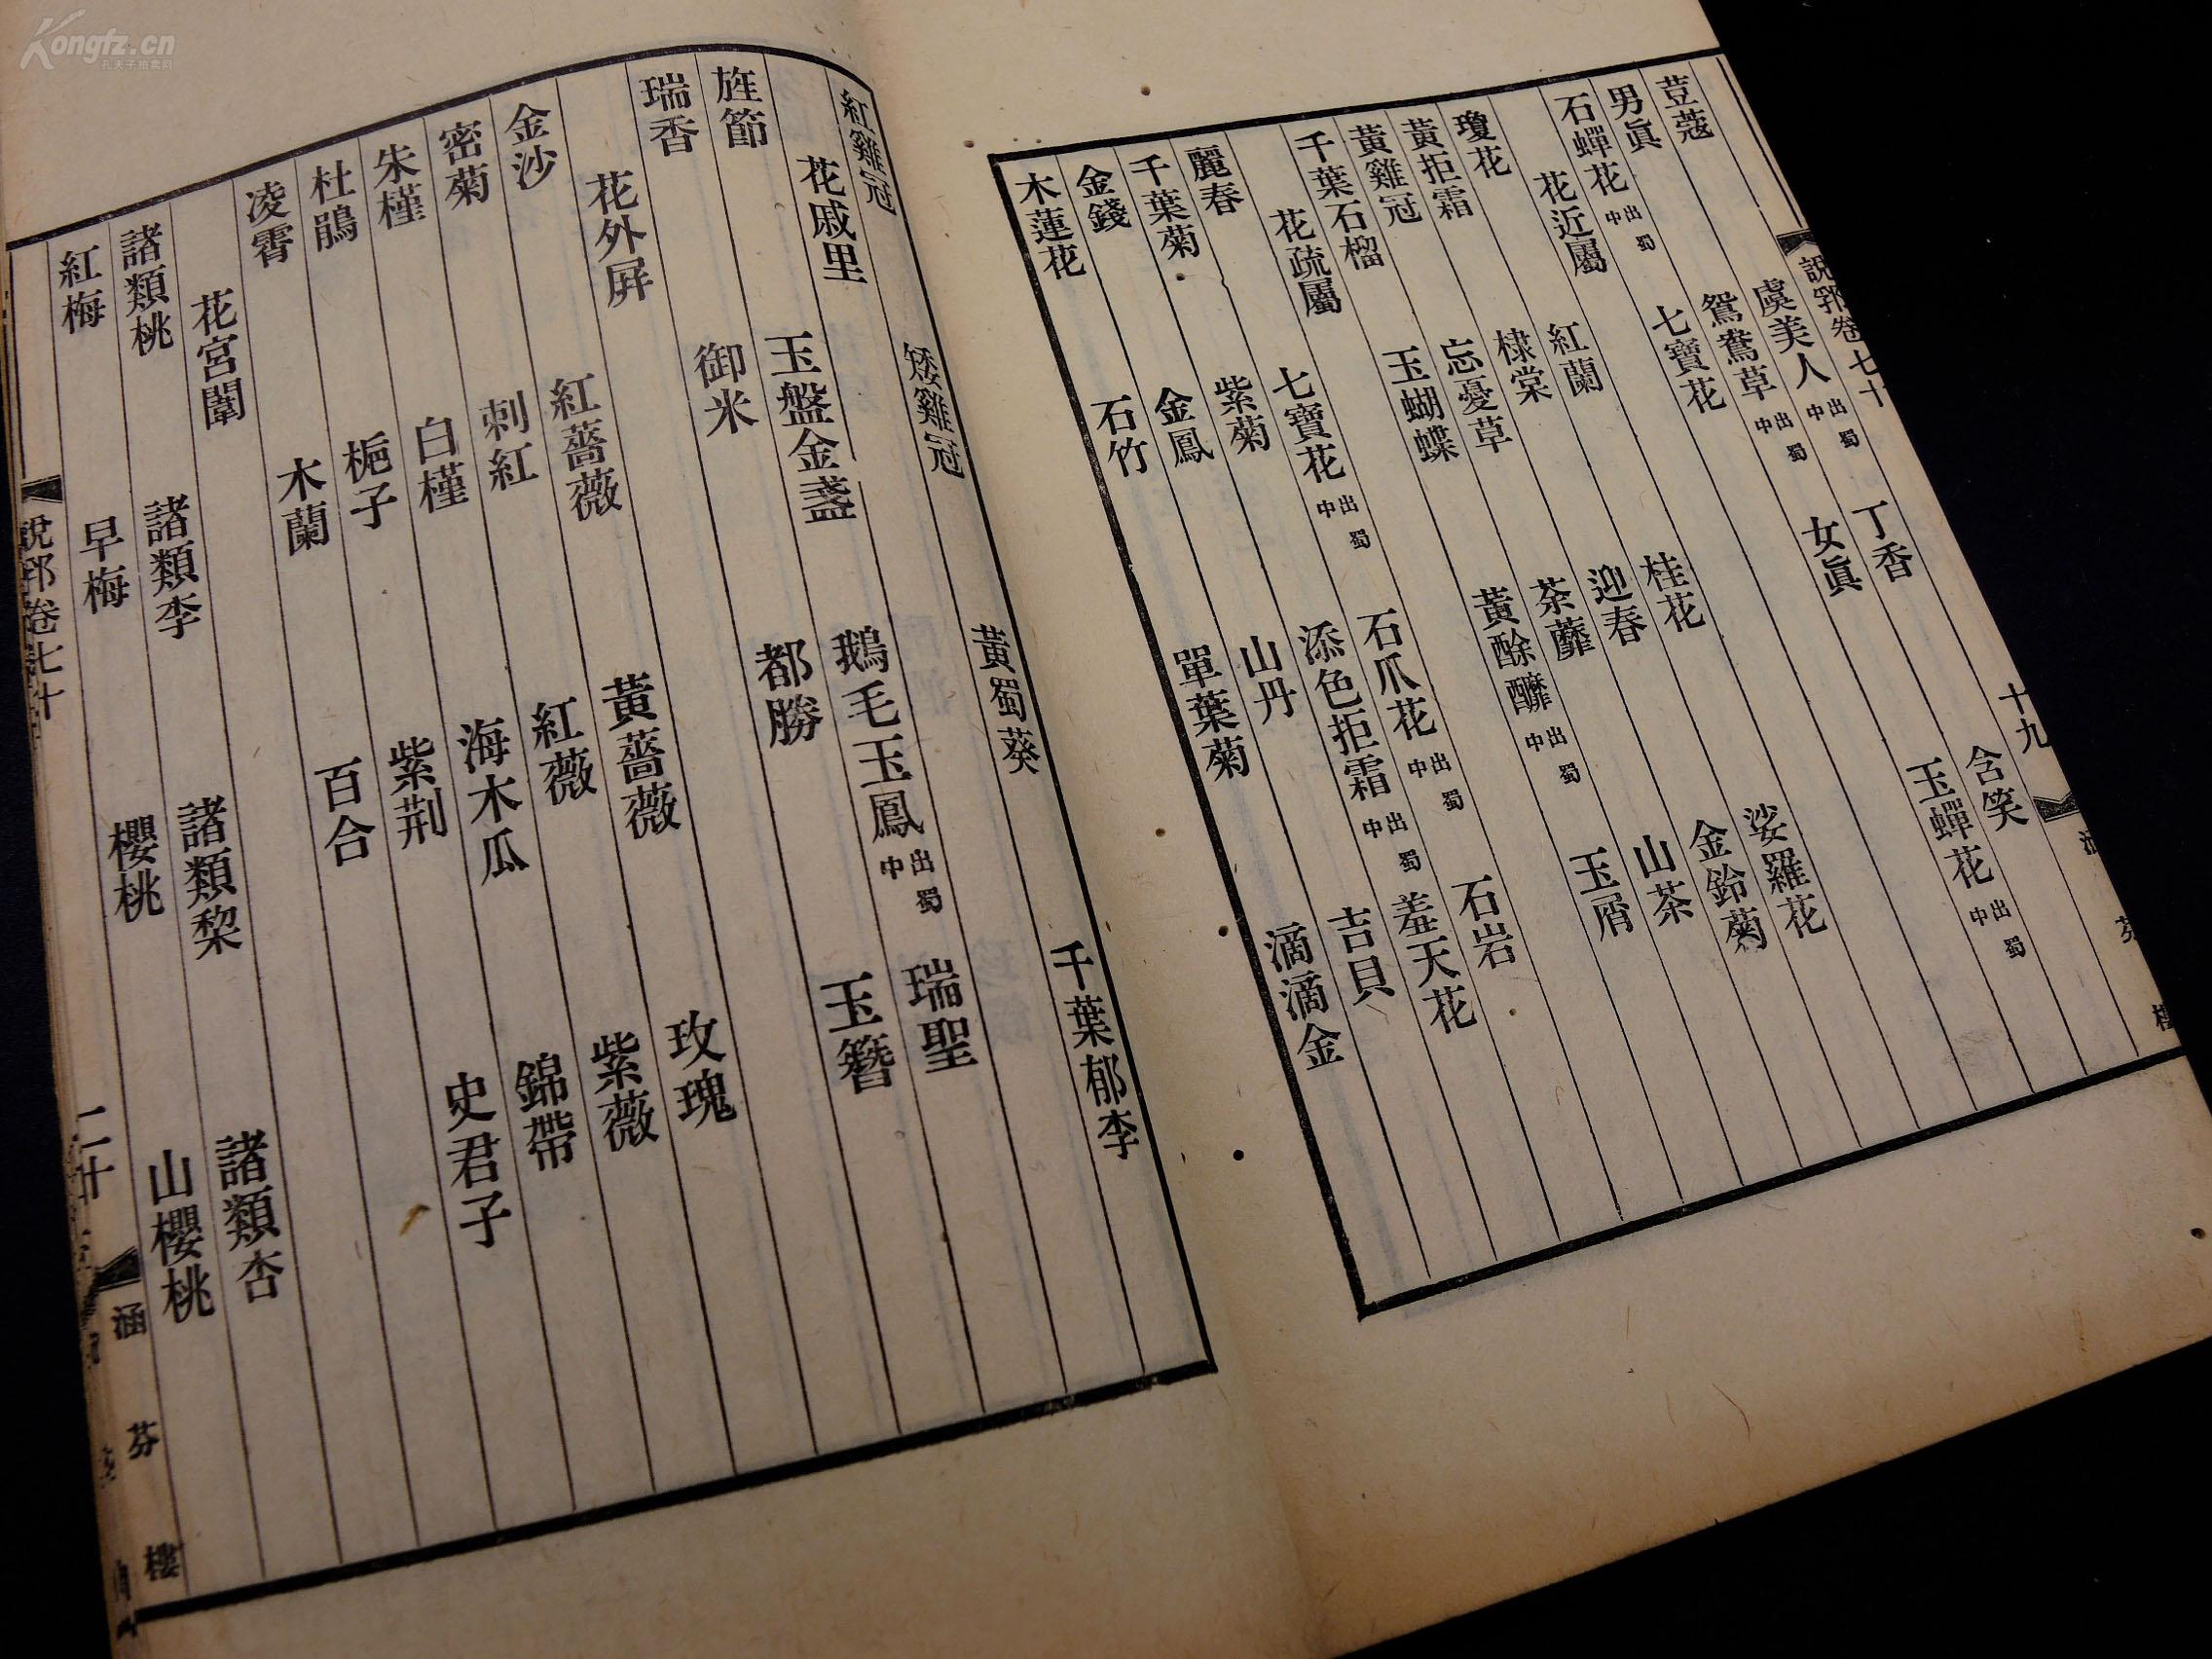 Kongfz.cn
孔夫子拍卖网
說郛卷七十 十九 涵芬樓
荳蔻 虞美人出蜀中 丁香 含笑
男眞 鴛鴦草出蜀中 女眞 玉蟬花出蜀中
石蟬花出蜀中 七寶花
花近屬
瓊花 紅蘭 桂花 娑羅花
黃拒霜 棣棠 迎春 金鈴菊
黃雞冠 忘憂草 荼蘼 山茶
千葉石榴 玉蝴蝶 黃酴醿出蜀中 玉屑
花疏屬
麗春 七寶花出蜀中 石爪花出蜀中 石岩
千葉菊 紫菊 添色拒霜出蜀中 羞天花
金錢 金鳳 山丹 吉貝
木蓮花 石竹 單葉菊 滴滴金
紅雞冠 矮雞冠 黃蜀葵 千葉郁李
花戚里
旌節 玉盤金盞 鵝毛玉鳳出蜀中 瑞聖
瑞香 御米 都勝 玉簪
花外屏
金沙 紅薔薇 黃薔薇 玫瑰
密菊 刺紅 紅薇 紫薇
朱槿 白槿 海木瓜 錦帶
杜鵑 梔子 紫荊 史君子
凌霄 木蘭 百合
花宮闈
諸類桃 諸類李 諸類棃 諸類杏
紅梅 早梅 櫻桃 山櫻桃
說郛卷七十 二十 涵芬樓